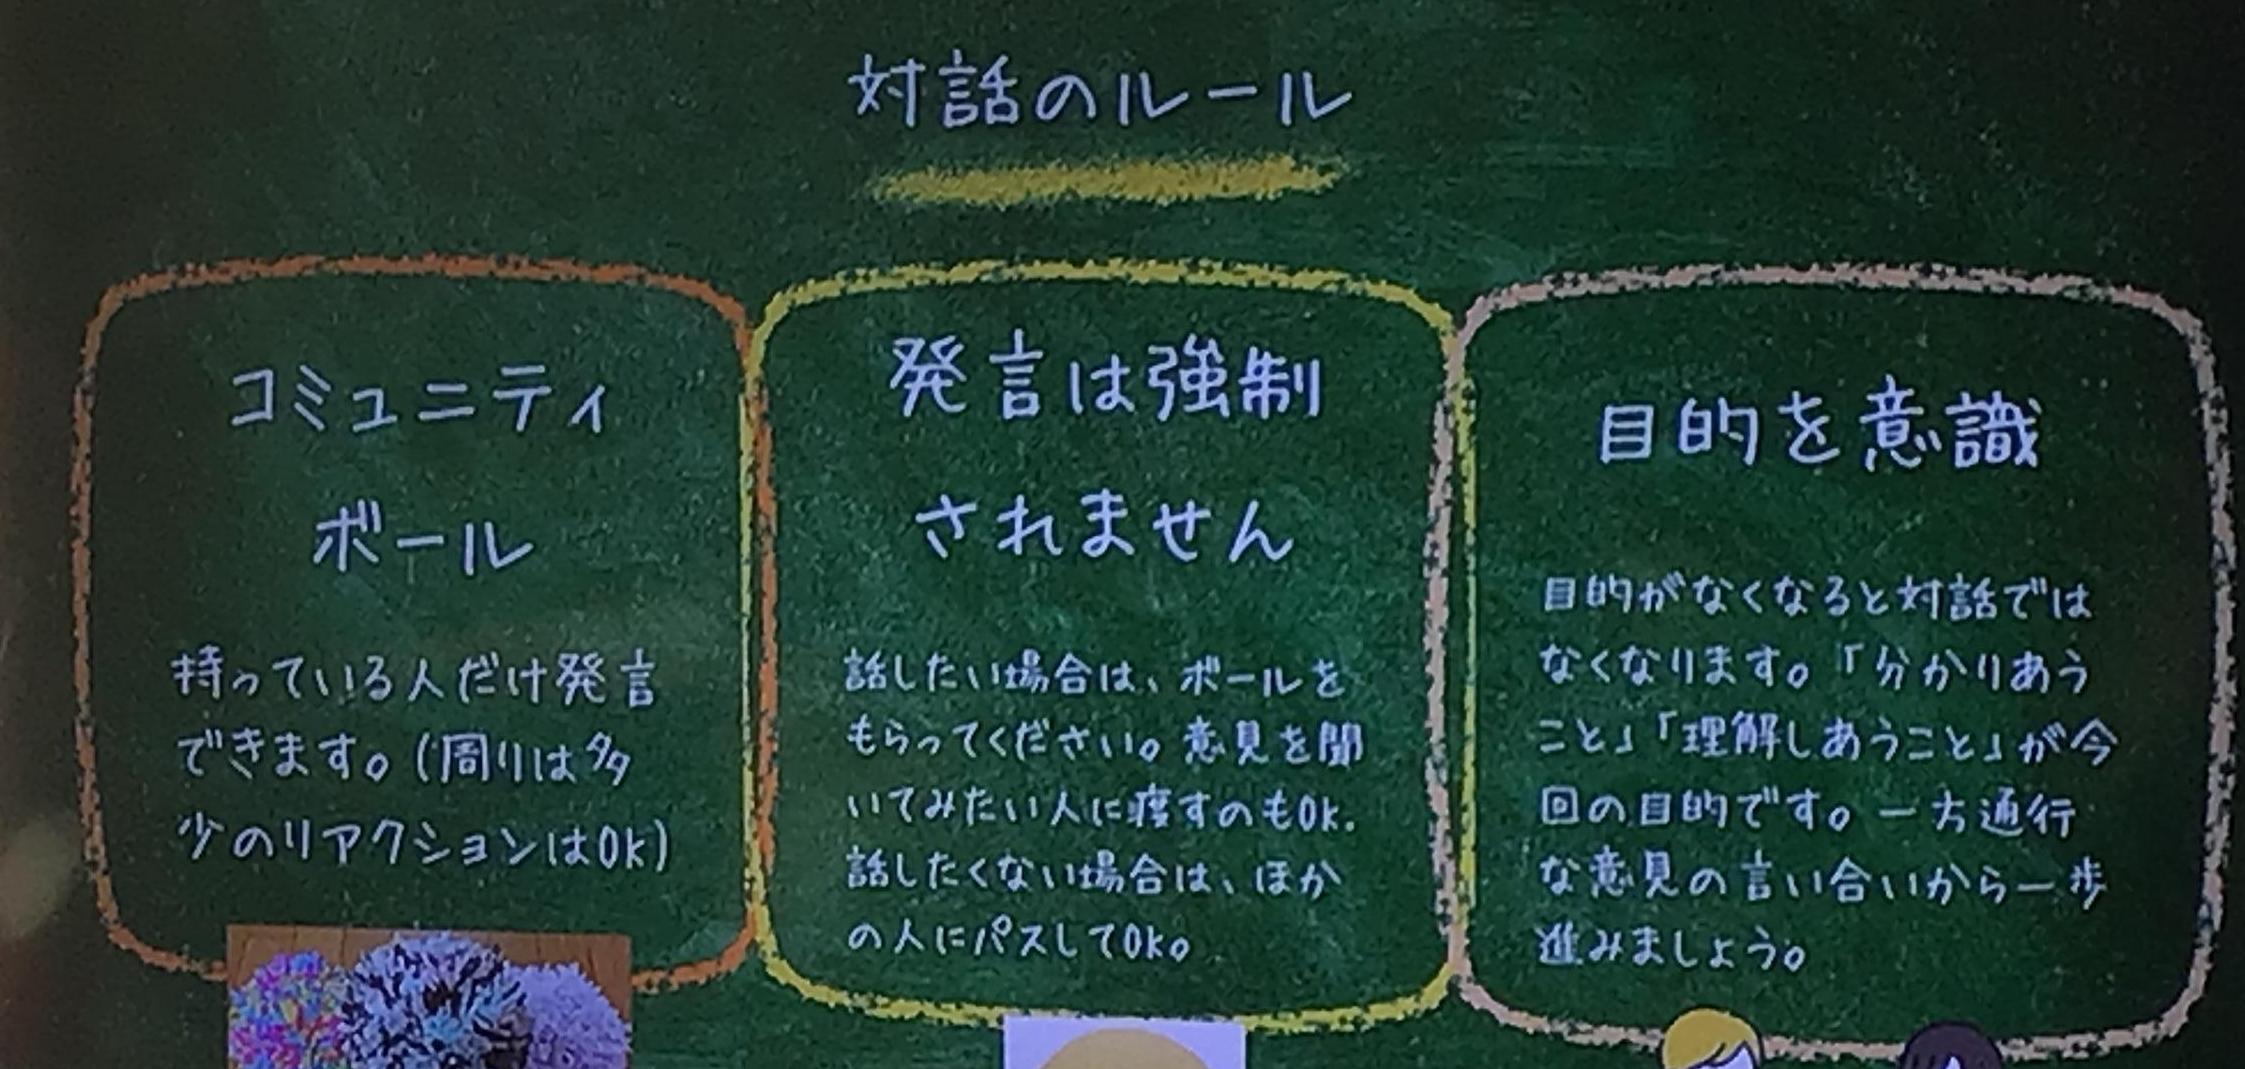 対話のルール
コミュニティ
ボール
持っている人だけ発言
できます。(周りは多
少のリアクションはOk)
発言は強制
されません
話したい場合は、ボールを
もらってください。意見を聞
いてみたい人に渡すのもOk.
話したくない場合は、ほか
の人にパスしてOk。
目的を意識
目的がなくなると対話では
なくなります。「分かりあう
こと」「理解しあうこと」が今
回の目的です。一方通行
な意見の言い合いから一歩
進みましょう。